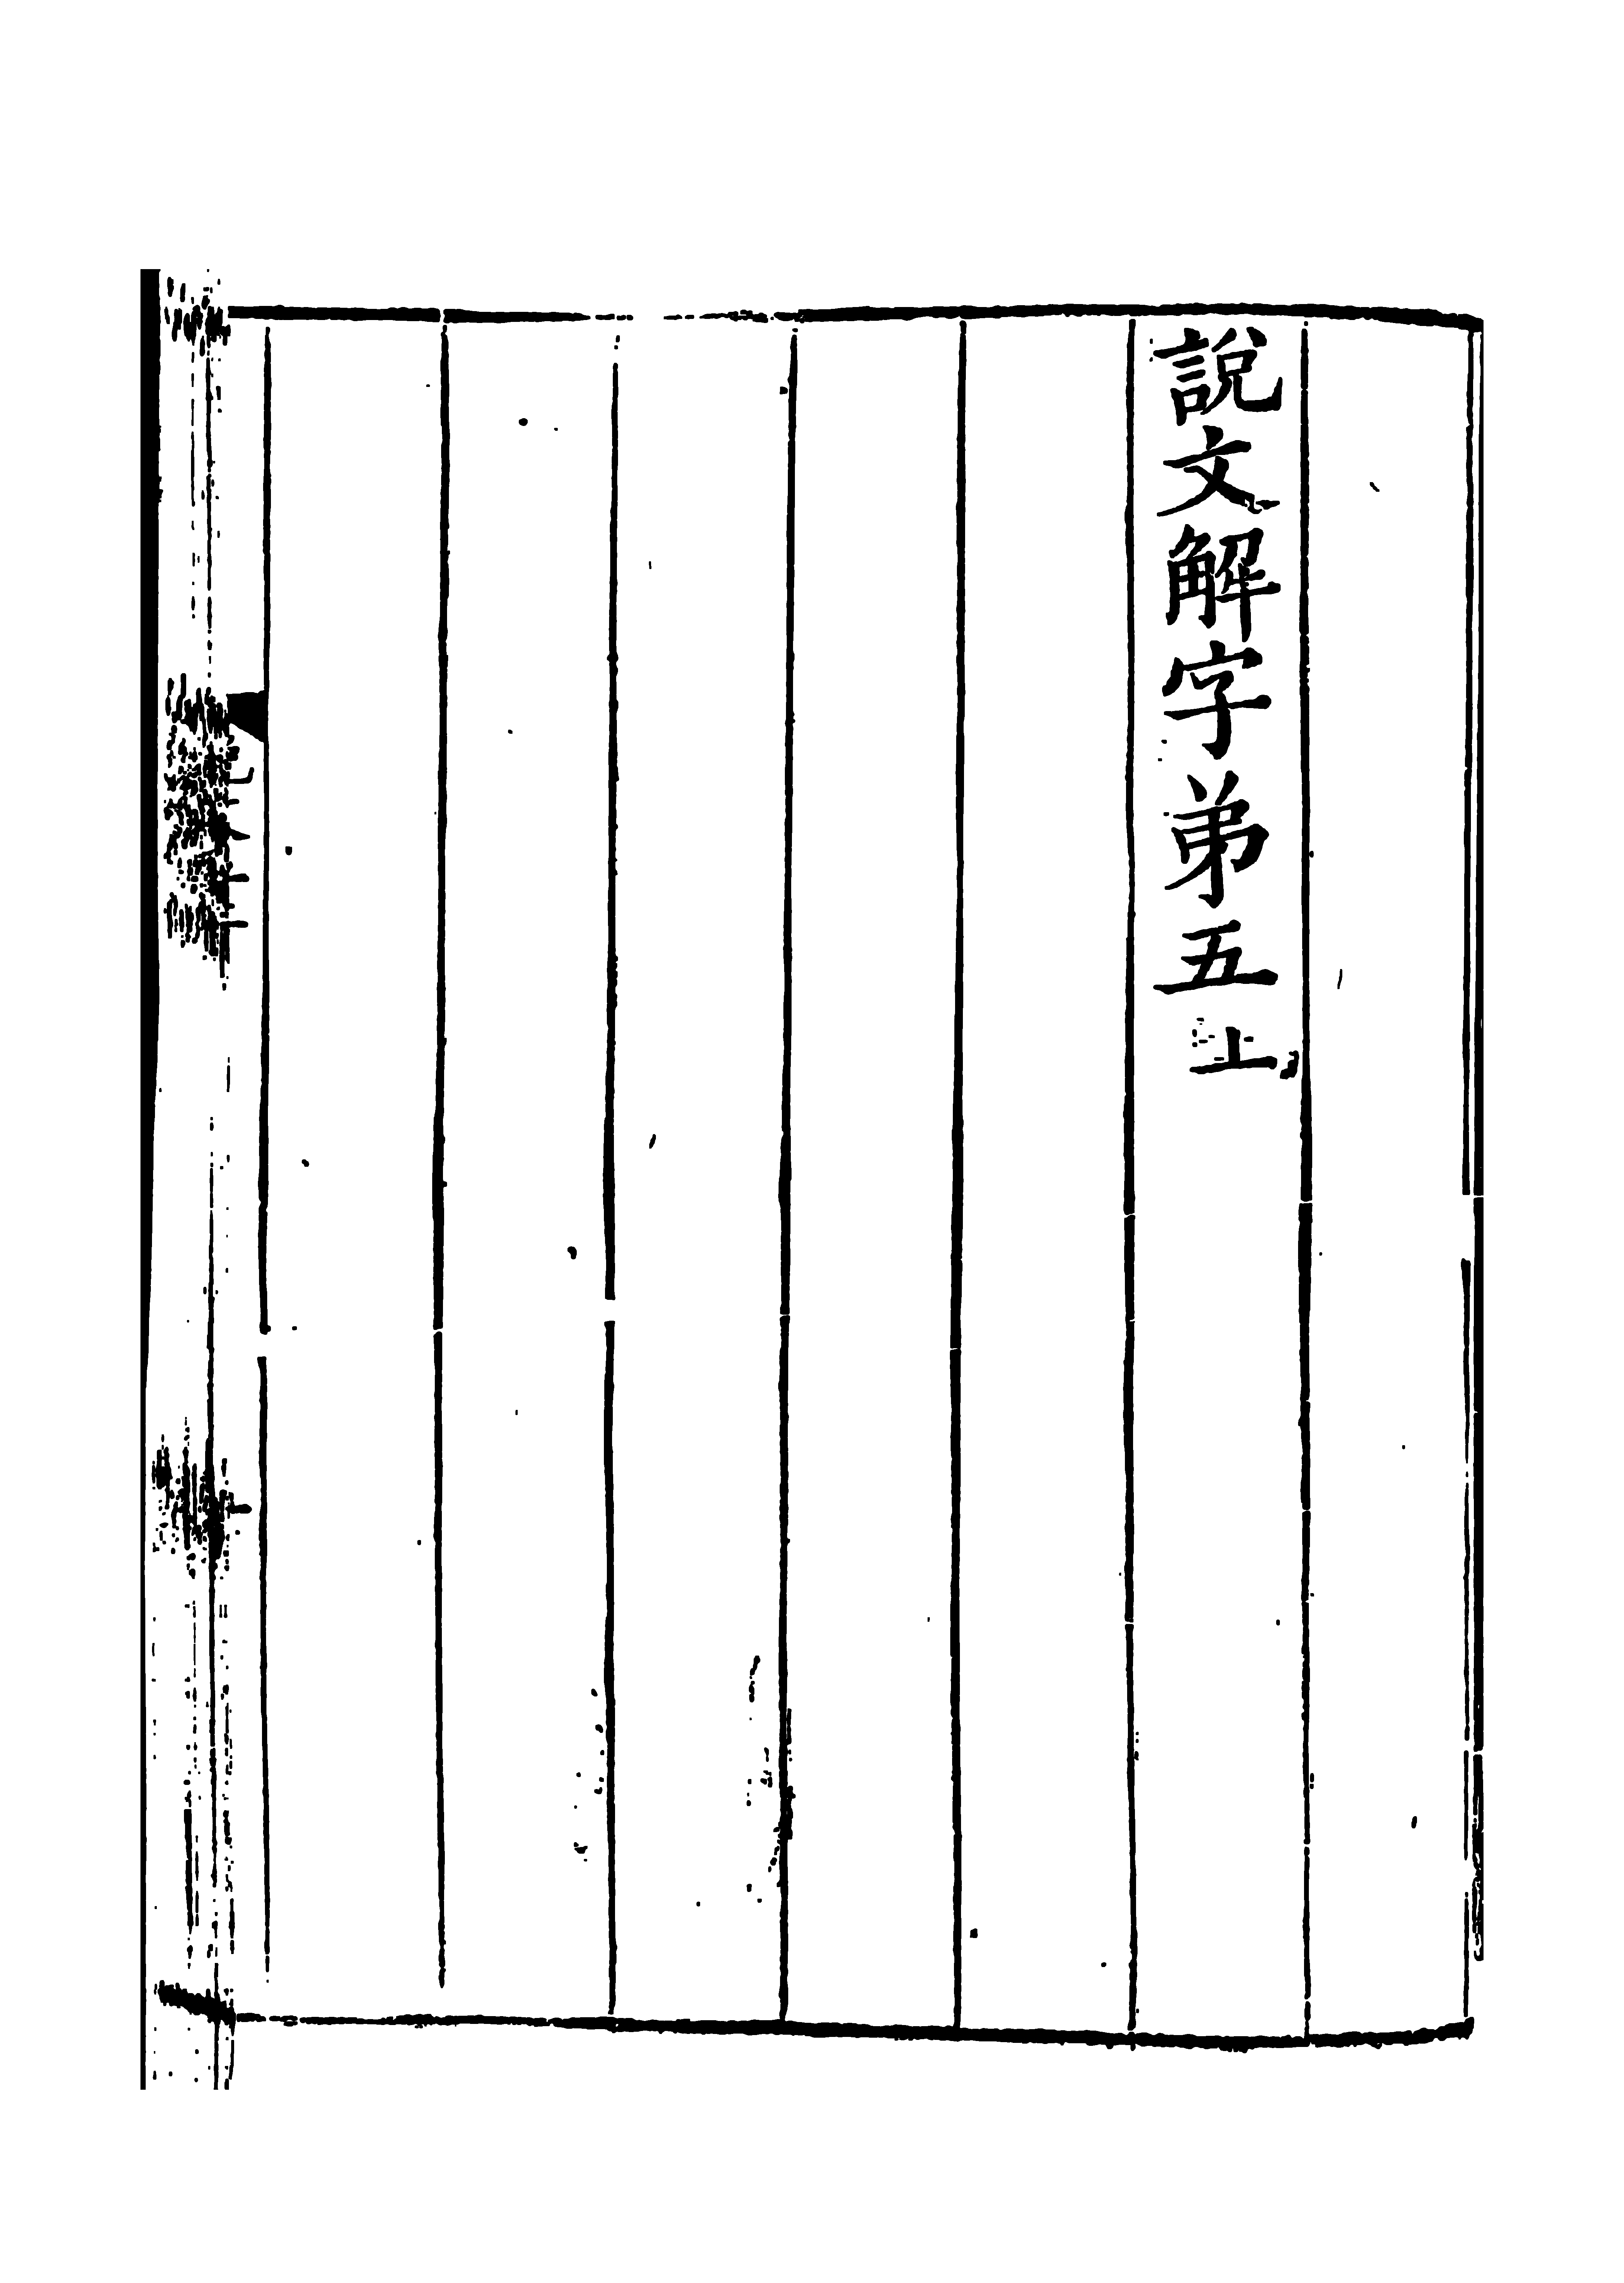 說文解字弟五上